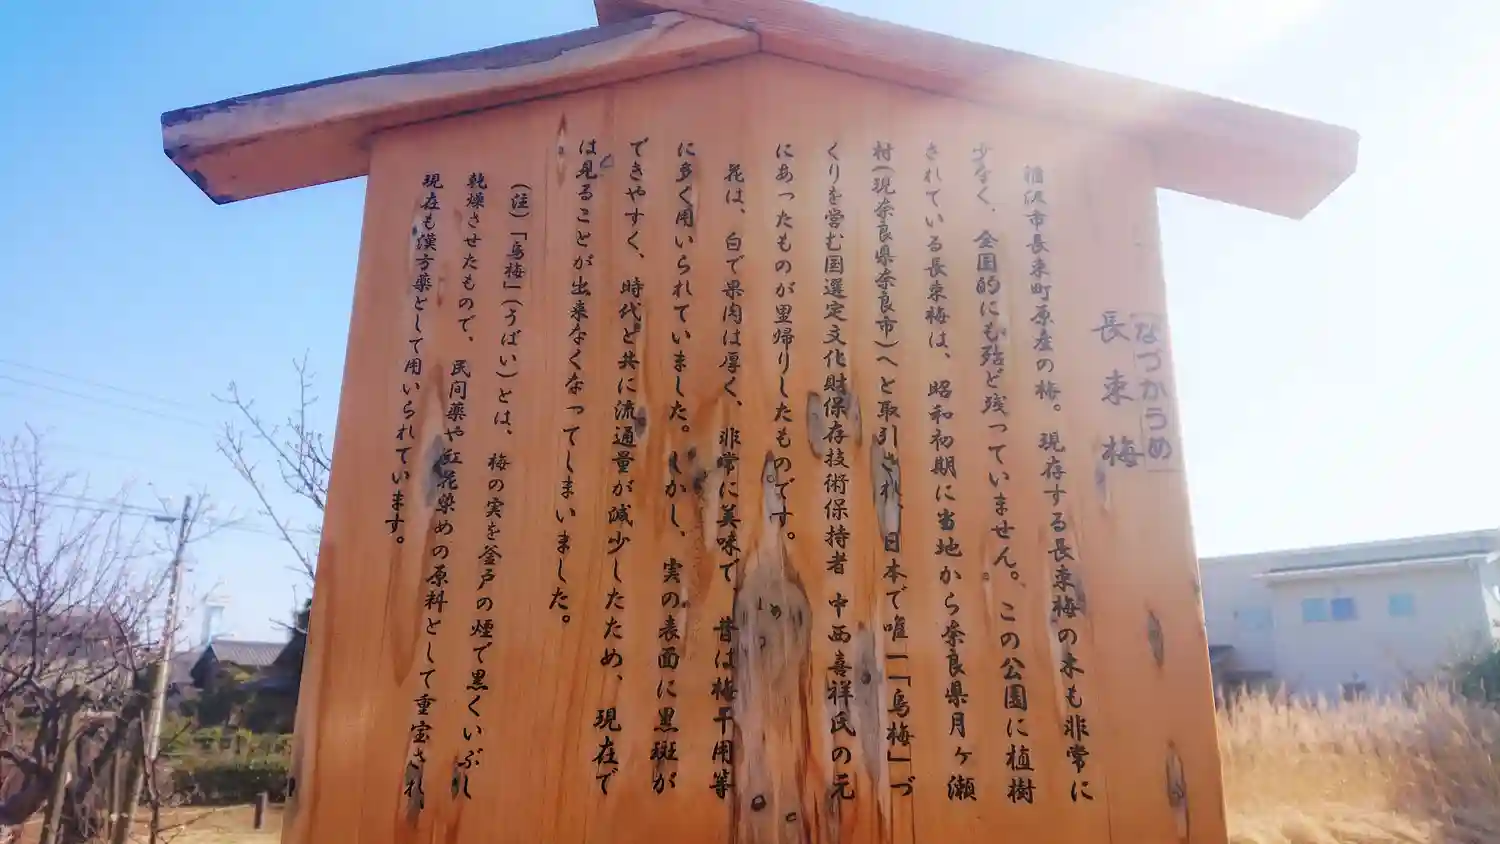 (なづかうめ)
長束梅
稲沢市長束町原産の梅。現存する長束梅の木も非常に
少なく、全国的にも殆ど残っていません。この公園に植樹
されている長束梅は、昭和初期に当地から奈良県月ヶ瀬
村(現奈良県奈良市)へと取引され、日本で唯一「烏梅」づ
くりを営む国選定文化財保存技術保持者 中西喜祥氏の元
にあったものが里帰りしたものです。
花は、白で果肉は厚く、非常に美味で、昔は梅干用等
に多く用いられていました。しかし、実の表面に黒斑が
できやすく、時代と共に流通量が減少したため、現在で
は見ることが出来なくなってしまいました。
(注)「烏梅」(うばい)とは、梅の実を釜戸の煙で黒くいぶし
乾燥させたもので、民間薬や紅花染めの原料として重宝され、
現在も漢方薬として用いられています。